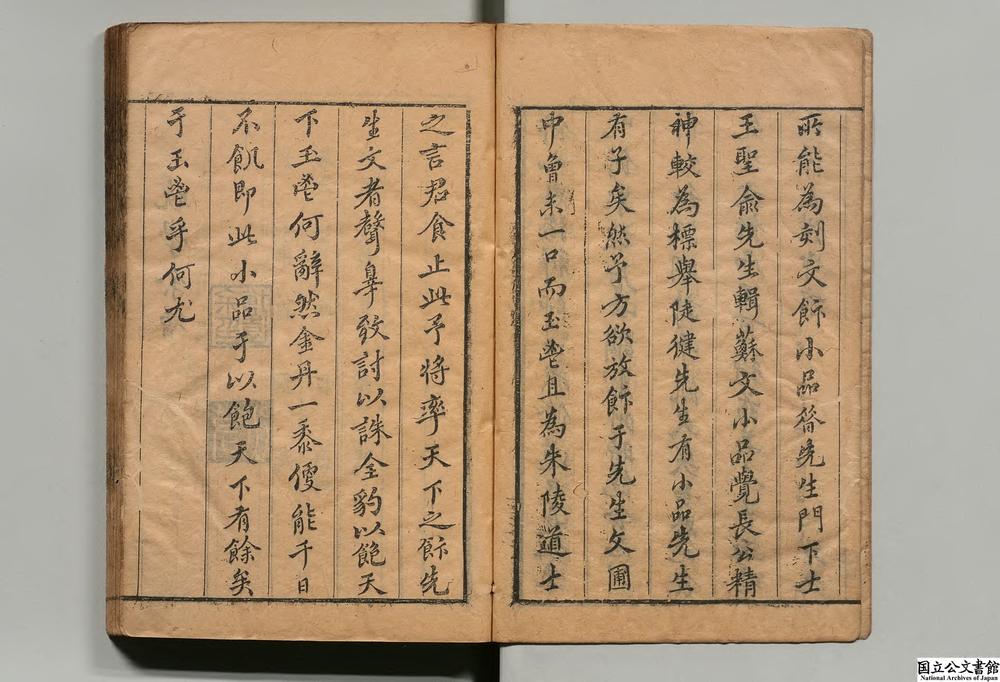 所能為刻文飰小品昝先生門下士
王聖俞先生輯蘇文小品覺長公精
神較為標舉陡健先生有小品先生
有子矣然予方欲放飰于先生文圃
中曾未一口而玉詧且為朱陵道士
之言君食止此予將率天下之飰先
生文者聲辠致討以誅全豹以飽天
下玉詧何辭然金丹一黍便能千日
不飢即此小品于以飽天下有餘矣
于玉詧乎何尤
国立公文書館
National Archives of Japan